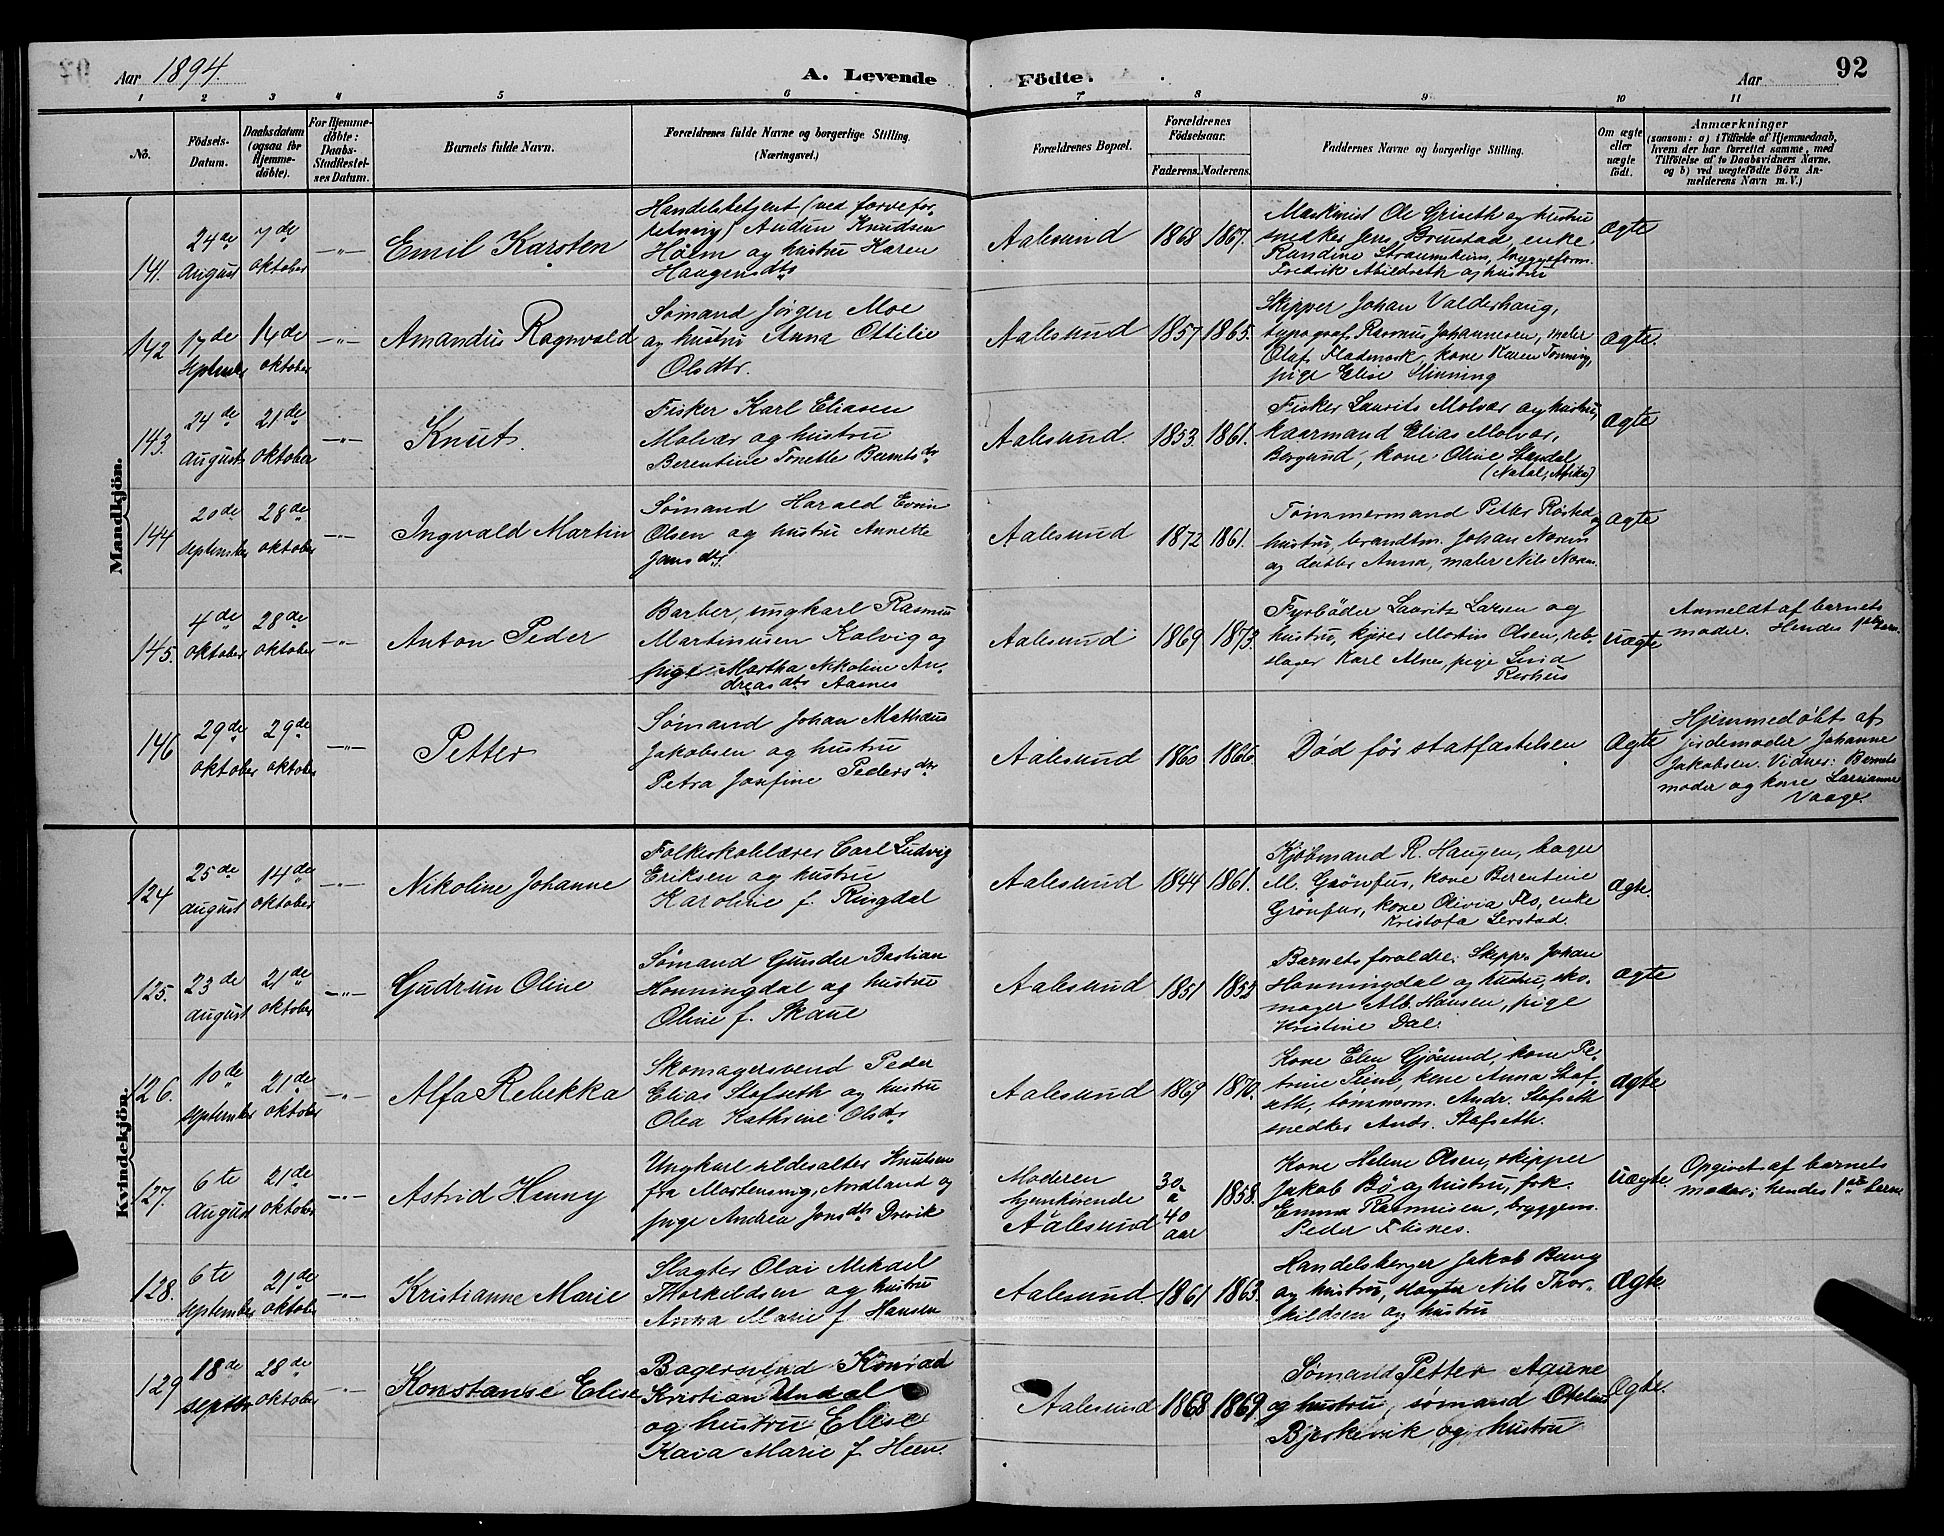 Aar 1894.
A. Levende Födte.
Aar
92
1 2 3 4 5 6 7 8 9 10 11
No.
Födsels-Datum.
Daabsdatum (ogsaa for Hjemme-döbte).
For Hjemme-döbte: Daabs-Stadfæstel-ses Datum.
Barnets fulde Navn.
Forældrenes fulde Navne og borgerlige Stilling. (Næringsvei.)
Forældrenes Bopæl.
Forældrenes Födselsaar.
Faderens. Moderens.
Faddernes Navne og borgerlige Stilling.
Om ægte eller uægte födt.
Anmærkninger
(saasom: a) i Tilfælde af Hjemmedaab,
hvem der har forrettet samme, med
Tilföielse af to Daabsvidners Navne,
og b) ved uægtefödte Börn An-
melderens Navn m. V.)
Mandkjön.
141. 24de August
7de oktober
-"-
Emil Karsten
Handelsbetjent (ved farvefor-
retning) Audun Knudsen
Holm og hustru Karen
Haagensdtr
Aalesund
1868 1867.
Maskinist Ole Griseth og hustru
snedker Jens Brunstad, enke
Randine Straumsheim, bryggeform.
Fredrik Abildseth og hustru
Ægte
142 17de September
14de oktober
-"-
Amandus Ragnvald
Sømand Jörgen Moe
og hustru Anna Ottilie
Olsdtr.
Aalesund
1857 1865.
Skipper Johan Valderhaug,
typograf Rasmus Johannesen, maler
Olaf Fladmark, kone Karen Tonning,
pige Elise Hinning
Ægte.
143. 24de August
21de oktober
-"-
Knut
Fisker Karl Eliasen
Molvær og hustru
Berentine Tonette Berntsdr
Aalesund.
1853. 1861.
Fisker Laurits Molvær og hustru,
kaarmand Elias Molvær,
Borgund, kone Oline Standal
(Natal, Afrika)
Ægte
144 20de September
28de oktober
-"-
Ingvald Martin
Sømand Harald Evin
Olsen og hustru Annette
Jansdtr.
Aalesund
1872 1861.
Tømmermand Petter Røsted og
hustru, brandtm. Johan Noren
og datter Anna, maler Nils Noren.
Ægte
145. 4de oktober
28de oktober
-"-
Anton Peder
Barber, ungkarl Rasmus
Martinusen Kalvig og
pige Martha Nikoline An-
dreasdtr Aasnes
Aalesund
1869 1873.
Fyrbøder Lauritz Larsen og
hustru, kjører Martin Olsen, reb-
slager Karl Alnes, pige
Uægte
Anmeldt af barnets
moder. Hendes 1ste barn.
146 29de oktober
29de oktober
-"-
Petter
Sømand Johan Mathæus
Jakobsen og hustru
Petra Josefine Pedersdtr
Aalesund
1860 1866.
Død før statfæstelsen
Ægte
Hjemmedøbt af
jordemoder Johanne
Jakobsen. Vidner: Barnets
moder og kone Larsianne
Vaage.
Kvindekjön.
124 25de august
14de oktober
-"-
Nikoline Johanne
Folkeskolelærer Carl Ludvig
Eriksen og hustru
Karoline f. Ringdal
Aalesund
1844 1861.
Kjøbmand R. Haugen, bager
M. Grönfur, kone Berentine
Grönfur, kone Olivia Flo, enke
Kristofa Lerstad.
Ægte.
125. 23de august
21de oktober
-"-
Gudrun Oline
Sømand Gunder Bastian
Honningdal og hustru
Oline f. Skaue
Aalesund
1851 1853
Barnets foreldre: Skipper Johan
Honningdal og hustru, sko-
mager Alb. Hansen, pige
Kristine Dal.
ægte
126. 10de september
21de oktober
-"-
Alfa Rebekka
Skomagersvend Peder
Elias Stafseth og hustru
Olea Kathrine Olsdr
Aalesund
1869 1870.
Kone Elen Gjösund, kone Pe-
trine, kone Anna Staf-
seth, tømmerm. Andr. Stafseth
snedker Andr. Stafseth.
ægte
127. 6te August
21de oktober
-"-
Astrid Henny
Ungkarl sildesalter Knutsen
fra, Nordland og
pige Andrea Jonsdtr Drivik
Moderen
hjemhørende
Aalesund
30 a 40 aar
1858.
Kone Helene Olsen, skipper
Jakob Bö og hustru, frk.
Emma Rasmusen, bryggem.
Peder Flisnes.
Uægte
Opgivet af barnets
moder; hendes 1ste barn
128. 6te September
21de oktober
-"-
Kristianne Marie
Slagter Olai Mikael
Thorkildsen og hustru
Anna Marie f Hansen
Aalesund.
1861 1863.
Handelsborger Jakob Berg
og hustru, slagter Nils Thor-
kildsen og hustru
Ægte.
129 18de septbr
28de oktober
-"-
Konstanse Elise
Bagersvend Konrad
Kristian Undal
og hustru Elise
Kaia Marie f. Heen.
Aalesund
1868 1869.
Sømand Petter Aaune
og hustru, sømand
Bjerkevik og hustru
Ægte.